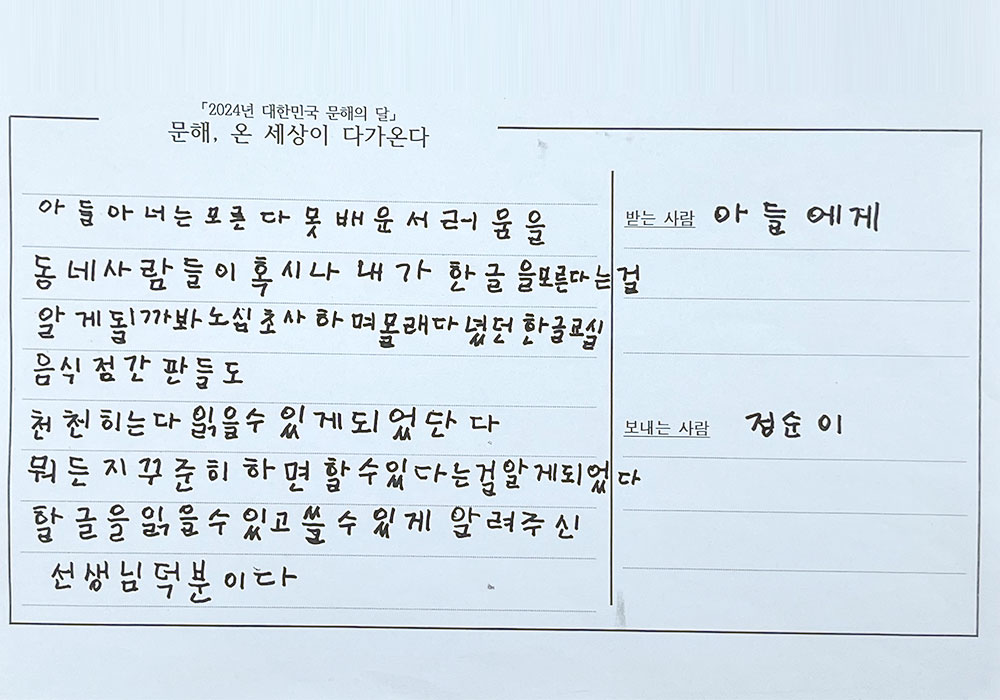 「2024년 대한민국 문해의 달」
문해, 온 세상이 다가온다
아들아 너는 모른다 못 배운 서러움을
동네사람들이 혹시나 내가 한글을모른다는걸
알게될까봐 노심초사하며몰래다녔던 한글교실
음식점간판들도
천천히는다 읽을수 있게되었단다
뭐든지꾸준히하면 할수있다는걸알게되었다
할글을읽을수있고 쓸수있게 알려주신
선생님덕분이다
받는 사람 아들에게
보내는 사람 정순이